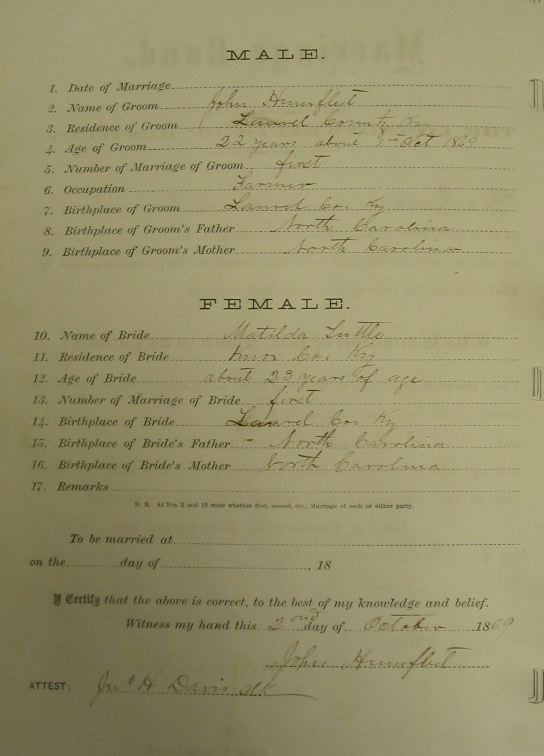 MALE.
1. Date of Marriage
2. Name of Groom John Humfleet
3. Residence of Groom Laurel County Ky
4. Age of Groom 22 years about Oct 1869
5. Number of Marriage of Groom first
6. Occupation Farmer
7. Birthplace of Groom Laurel Co. Ky
8. Birthplace of Groom's Father North Carolina
9. Birthplace of Groom's Mother North Carolina
FEMALE.
10. Name of Bride Matilda Tuttle
11. Residence of Bride Knox Co. Ky
12. Age of Bride about 23 years of age
13. Number of Marriage of Bride first
14. Birthplace of Bride Laurel Co. Ky
15. Birthplace of Bride's Father - North Carolina
16. Birthplace of Bride's Mother North Carolina
17. Remarks
N. B. At Nos. 5 and 13 state whether first, second, etc., Marriage of each or either party.
To be married at
on the day of , 18
I Certify that the above is correct, to the best of my knowledge and belief.
Witness my hand this 2nd day of October 1869
John Humfleet
ATTEST: Jno H Davis